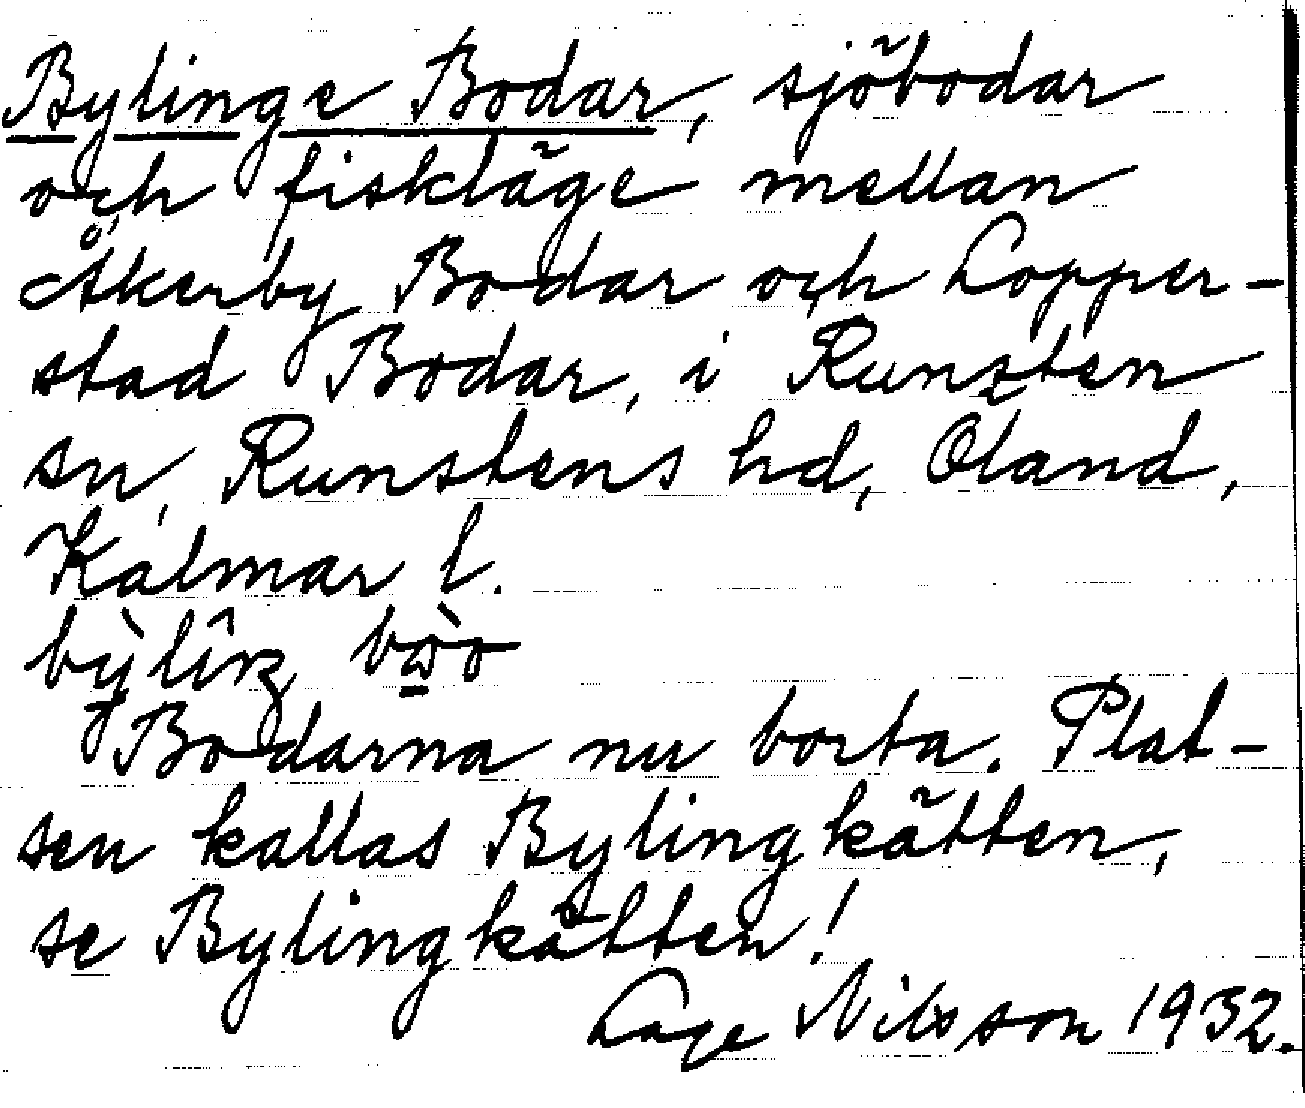 Bylinge Bodar, sjöbodar
och fiskläge mellan
Åkerby Bodar och Lopper-
stad Bodar, i Runsten
sn, Runstens hd, Öland,
Kalmar l.
Bodarna nu borta. Plat-
sen kallas Bylingkätten,
se Bylingkätten!
Lage Nilsson 1932.